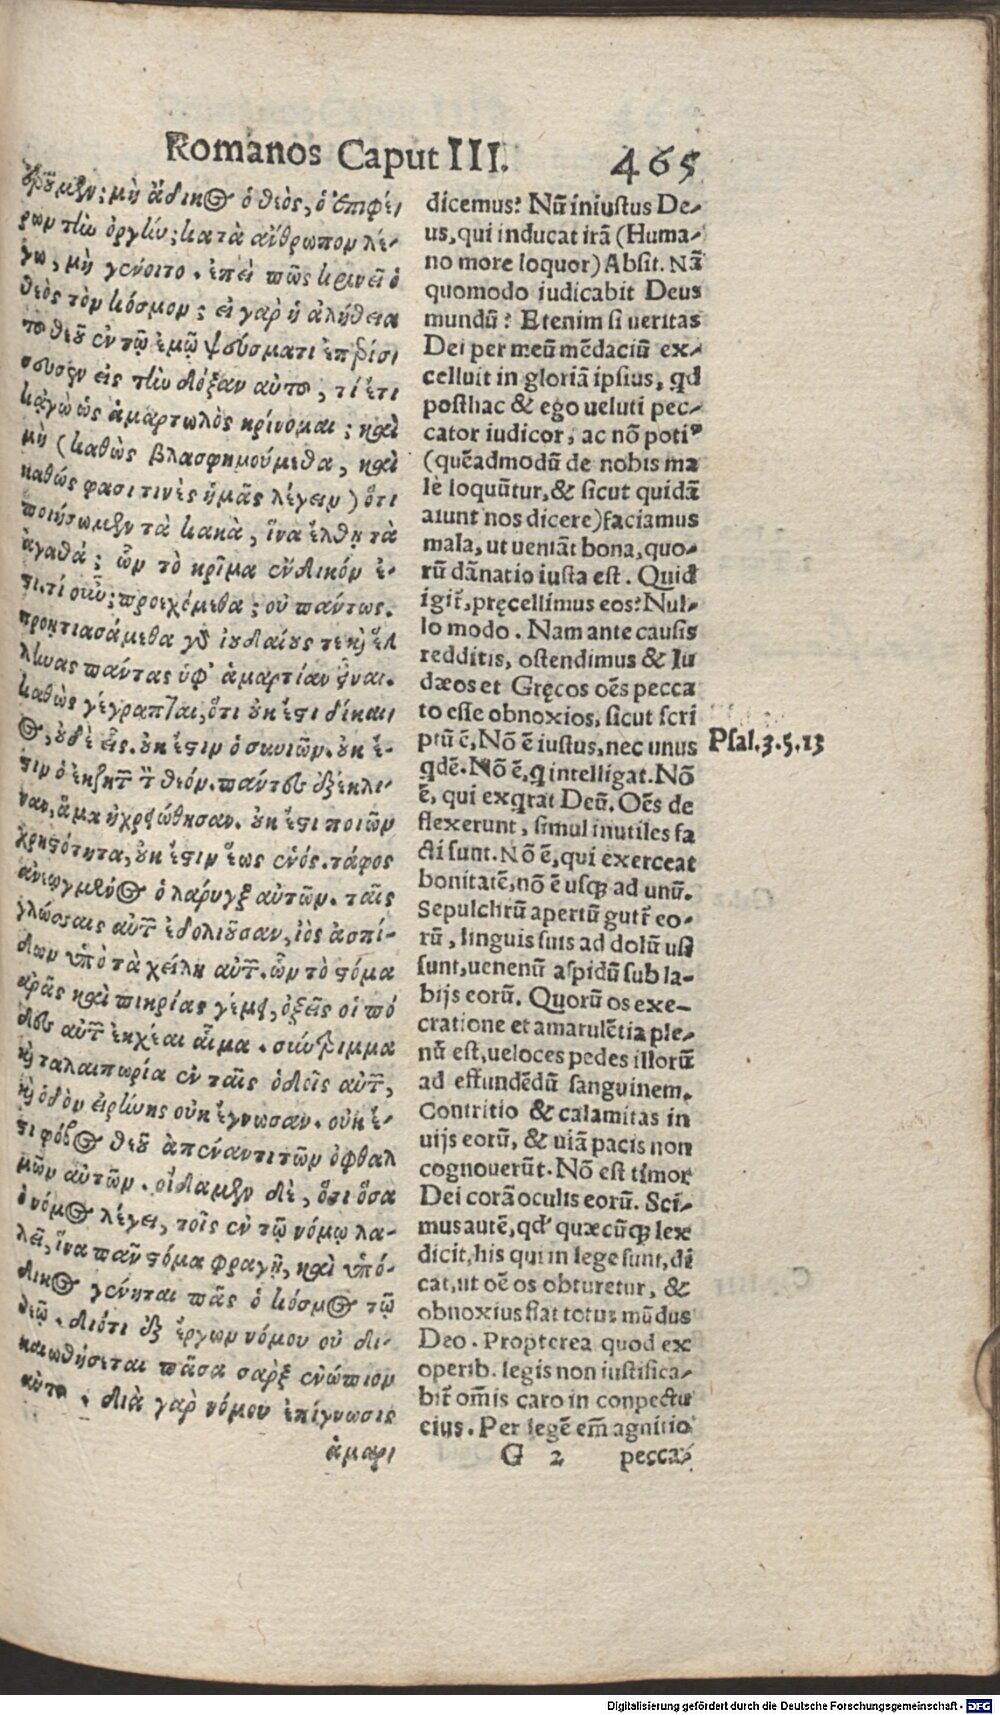 Romanos Caput III. 465
ροῦμεν; μὴ ἄδικος ὁ θεὸς, ὁ ἐπιφέ-
ρων τὴν ὀργήν; κατὰ ἄνθρωπον λέ-
γω, μὴ γένοιτο. ἐπεὶ πῶς κρινεῖ ὁ
θεὸς τὸν κόσμον; εἰ γὰρ ἡ ἀλήθεια
τοῦ θεοῦ ἐν τῷ ἐμῷ ψεύσματι ἐπερίσ-
σευσεν εἰς τὴν δόξαν αὐτοῦ, τί ἔτι
κἀγὼ ὡς ἁμαρτωλὸς κρίνομαι; καὶ
μὴ (καθὼς βλασφημούμεθα, καὶ
καθώς φασι τινὲς ἡμᾶς λέγειν) ὅτι
ποιήσωμεν τὰ κακὰ, ἵνα ἔλθῃ τὰ
ἀγαθά; ὧν τὸ κρῖμα ἔνδικόν ἐ-
στι. τί οὖν; προεχόμεθα; οὐ πάντως.
προῃτιασάμεθα γὰρ ἰουδαίους τε καὶ ἕλ
ληνας πάντας ὑφ' ἁμαρτίαν εἶναι.
καθὼς γέγραπται, ὅτι οὐκ ἔστι δίκαι-
ος, οὐδὲ εἷς. οὐκ ἔστιν ὁ συνιῶν. οὐκ ἔ-
στιν ὁ ἐκζητῶν τὸν θεόν. πάντες ἐξέκλι-
ναν, ἅμα ἠχρειώθησαν. οὐκ ἔστι ποιῶν
χρηστότητα, οὐκ ἔστιν ἕως ἑνός. τάφος
ἀνεῳγμένος ὁ λάρυγξ αὐτῶν. ταῖς
γλώσσαις αὐτῶν ἐδολιοῦσαν, ἰὸς ἀσπί-
δων ὑπὸ τὰ χείλη αὐτῶν. ὧν τὸ στόμα
ἀρᾶς καὶ πικρίας γέμει, ὀξεῖς οἱ πό
δες αὐτῶν ἐκχέαι αἷμα. σύντριμμα
καὶ ταλαιπωρία ἐν ταῖς ὁδοῖς αὐτῶν,
καὶ ὁδὸν εἰρήνης οὐκ ἔγνωσαν. οὐκ ἔ-
στι φόβος θεοῦ ἀπέναντι τῶν ὀφθαλ
μῶν αὐτῶν. οἴδαμεν δὲ, ὅτι ὅσα
ὁ νόμος λέγει, τοῖς ἐν τῷ νόμῳ λα-
λεῖ, ἵνα πᾶν στόμα φραγῇ, καὶ ὑπό-
δικος γένηται πᾶς ὁ κόσμος τῷ
θεῷ. διότι ἐξ ἔργων νόμου οὐ δι-
καιωθήσεται πᾶσα σὰρξ ἐνώπιον
αὐτοῦ. διὰ γὰρ νόμου ἐπίγνωσις
ἁμαρ-
dicemus? Nũ iniustus De-
us, qui inducat irã (Huma-
no more loquor) Absit. Nã
quomodo iudicabit Deus
mundũ? Etenim si ueritas
Dei per meũ mẽdaciũ ex-
celluit in gloriã ipsius, qd
posthac & ego ueluti pec-
cator iudicor, ac nõ poti⁹
(quẽadmodũ de nobis ma
lè loquũtur, & sicut quidã
aiunt nos dicere) faciamus
mala, ut ueniãt bona, quo-
rũ dãnatio iusta est. Quid
igit̃, pręcellimus eos? Nul-
lo modo. Nam ante causis
redditis, ostendimus & Iu
dæos et Gręcos oẽs pecca
to esse obnoxios, sicut scri
ptũ ẽ, Nõ ẽ iustus, nec unus
qdẽ. Nõ ẽ, q intelligat. Nõ
ẽ, qui exqrat Deũ. Oẽs de
flexerunt, simul inutiles fa
cti sunt. Nõ ẽ, qui exerceat
bonitatẽ, nõ ẽ usq; ad unũ.
Sepulchrũ apertũ gutt̃ eo-
rũ, linguis suis ad dolũ usi
sunt, uenenũ aspidũ sub la-
bijs eorũ. Quorũ os exe-
cratione et amarulẽtia ple-
nũ est, ueloces pedes illorũ
ad effundẽdũ sanguinem.
Contritio & calamitas in
uijs eorũ, & uiã pacis non
cognouerũt. Nõ est timor
Dei corã oculis eorũ. Sci-
mus autẽ, qd' quæcũq; lex
dicit, his qui in lege sunt, di
cat, ut oẽ os obturetur, &
obnoxius fiat totus mũdus
Deo. Propterea quod ex
operib. legis non iustifica-
bit̃ om̃is caro in conpectu
eius. Per legẽ em̃ agnitio
G 2 pecca-
Psal.3.5.13
Digitalisierung gefördert durch die Deutsche Forschungsgemeinschaft - DFG